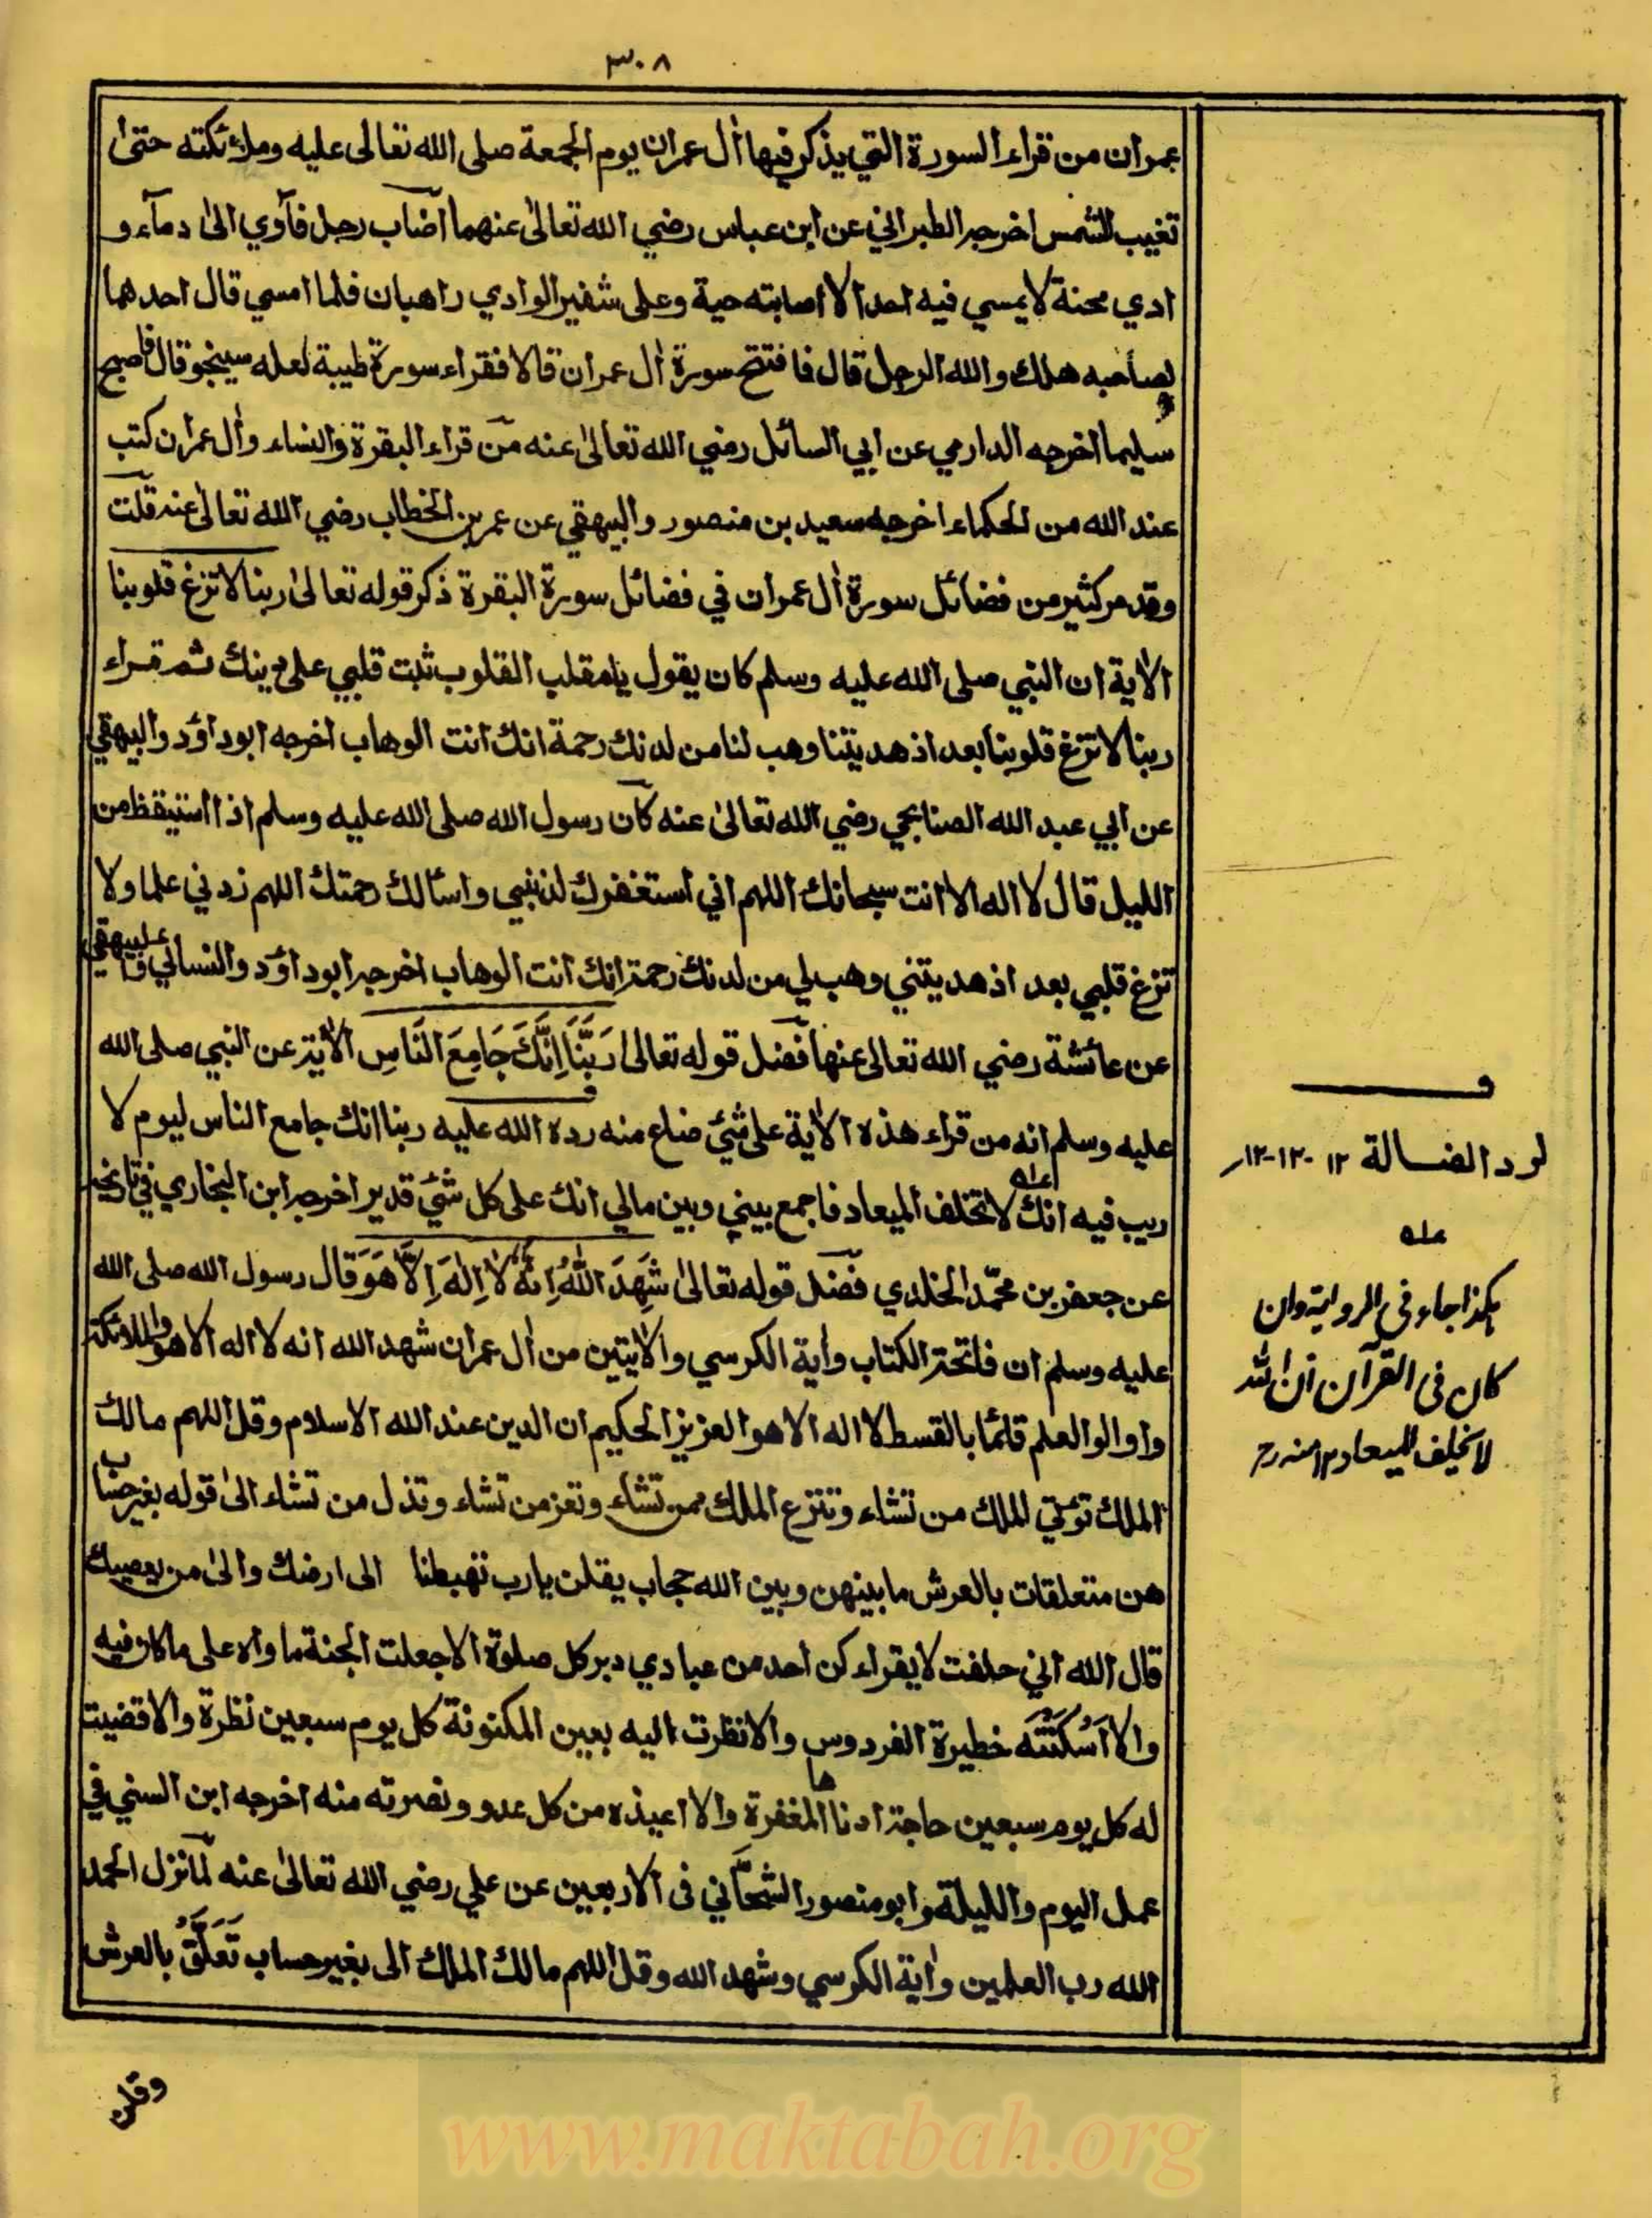 ٣٠٨
عمران من قراء السورة التي يذكر فيها اٰل عمران يوم الجمعة صلى الله تعالى عليه وملائكته حتىٰ
تغيب الشمس اخرجه الطبراني عن ابن عباس رضي الله تعالىٰ عنهما اصاب رجل فاَوي الىٰ دماَء و
ادي مجنة لا يمسي فيه احد الا اصابته حية وعلى شفير الوادي راهبان فلما امسي قال احدهما
لصاحبه هلك والله الرجل قال فافتتح سورة اٰل عمران قالا فقراء سورة طيبة لعله سينجو قال فاصبح
سليما اخرجه الدارمي عن ابي السائل رضي الله تعالىٰ عنه من قراء البقرة والنساء واٰل عمران كتب
عند الله من الحكماء اخرجه سعيد بن منصور والبيهقي عن عمر بن الخطاب رضي الله تعالىٰ عنه قلت
وقد مر كثير من فضائل سورة اٰل عمران في فضائل سورة البقرة ذكر قوله تعالىٰ ربنا لا تزغ قلوبنا
الاٰية ان النبي صلى الله عليه وسلم كان يقول يا مقلب القلوب ثبت قلبي علىٰ دينك ثم قراء
ربنا لا تزغ قلوبنا بعد اذ هديتنا وهب لنا من لدنك رحمة انك انت الوهاب اخرجه ابو داؤد والبيهقي
عن ابي عبد الله الصنابحي رضي الله تعالىٰ عنه كان رسول الله صلى الله عليه وسلم اذا استيقظ من
الليل قال لا اله الا انت سبحانك اللهم اني استغفرك لذنبي واسئالك رحمتك اللهم زدني علما ولا
تزغ قلبي بعد اذ هديتني وهب لي من لدنك رحمة انك انت الوهاب اخرجه ابو داؤد والنسائي والبيهقي
عن عائشة رضي الله تعالى عنها فضل قوله تعالىٰ رَبَّنَا اِنَّكَ جَامِعَ النَّاسِ الاٰية عن النبي صلى الله
عليه وسلم انه من قراء هذه الاٰية على شئ ضاع منه رده الله عليه ربنا انك جامع الناس ليوم لا
ريب فيه انك لا تخلف الميعاد فاجمع بيني وبين مالي انك على كل شئ قدير اخرجه ابن النجاري في تاريخه
عن جعفر بن محمّد الخلدي فضل قوله تعالىٰ شَهِدَ اللهُ اَنَّهُ لَا اِلٰهَ اِلَّا هُوَ قال رسول الله صلى الله
عليه وسلم ان فاتحة الكتاب واٰية الكرسي والاٰيتين من اٰل عمران شهد الله انه لا اله الا هو والملائكة
واوالوالعلم قائما بالقسط لا اله الا هو العزيز الحكيم ان الدين عند الله الاسلام وقل اللهم مالك
الملك تؤتي الملك من تشاء وتنزع الملك ممن تشاء وتعز من تشاء وتذل من تشاء الىٰ قوله بغير حساب
هن متعلقات بالعرش ما بينهن وبين الله حجاب يقلن يارب تهبطنا الى ارضك والىٰ من يعصيك
قال الله اني حلفت لا يقراء كن احد من عبادي دبر كل صلوة الا جعلت الجنة ماواه على ما كان فيه
والا اَسْكَنْتُه خطيرة الفردوس والا نظرت اليه بعين المكنونة كل يوم سبعين نظرة والا قضيت
له كل يوم سبعين حاجة ادناها المغفرة والا اعيذه من كل عدو ونصرته منه اخرجه ابن السني في
عمل اليوم والليلة وابو منصور الشحّاني فى الاربعين عن علي رضي الله تعالىٰ عنه لمّا نزل الحمد
الله رب العلمين واٰية الكرسي وشهد الله وقل اللهم مالك الملك الى بغير حساب تَعَلَّقْ بالعرش
وقلن
ف
لرد الضالة ١٢-١٢-١٢
عله
هكذا جاء في الرواية وان
كان فى القرآن ان الله
لا يخلف الميعاد ١٢ منه رح
www.maktabah.org